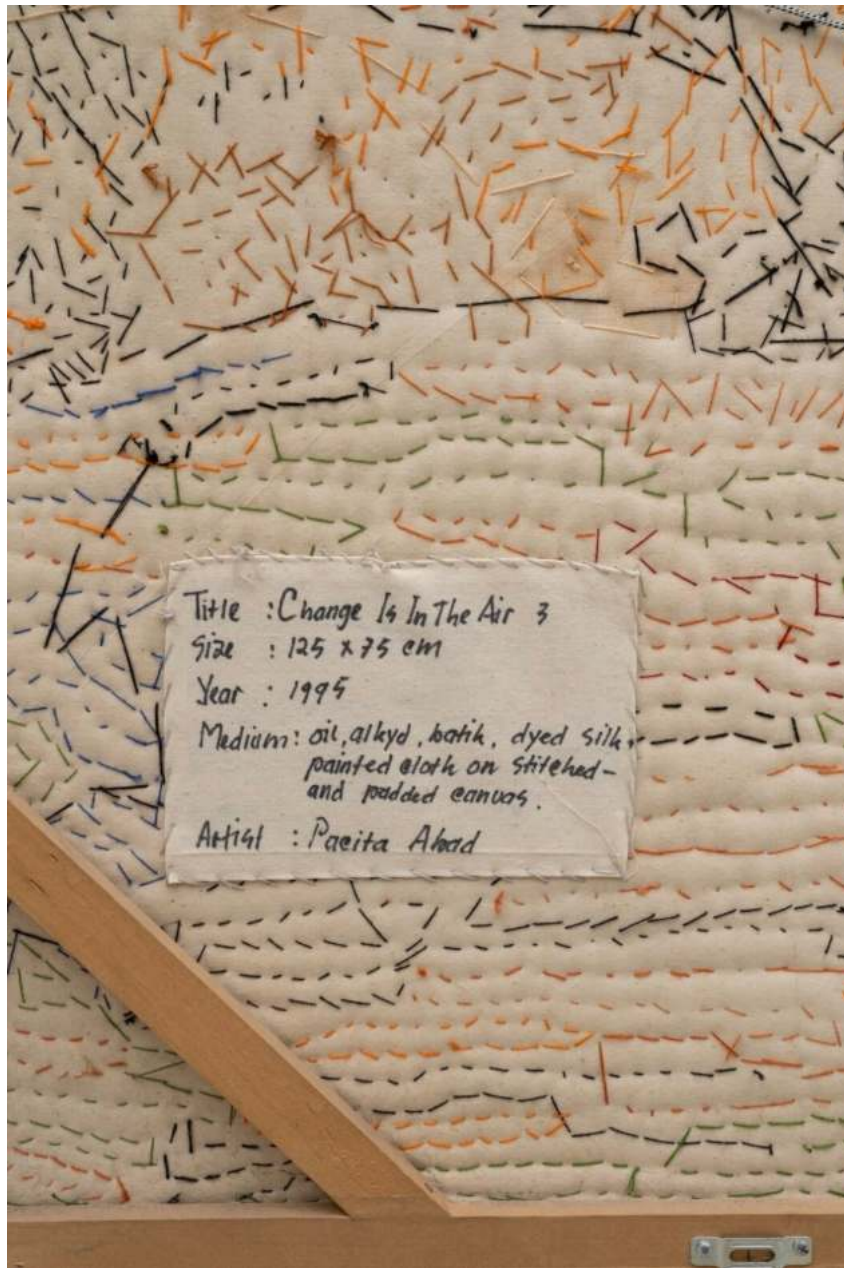 Title : Change Is In The Air 3
Size : 125 x 75 cm
Year : 1995
Medium : oil, alkyd, batik, dyed silk,
painted cloth on stitched-
and padded canvas.
Artist : Pacita Abad